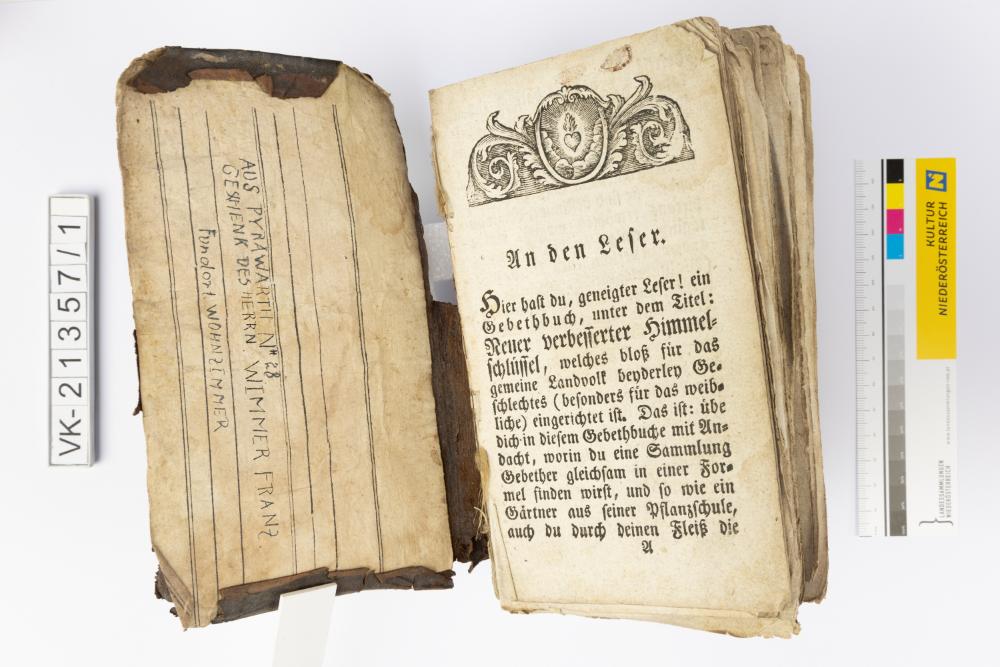 VK-21357/1
AUS PYRAWARTH N# 28
GESCHENK DES HERRN. WIMMER FRANZ
Fundort WOHNZIMMER
An den Leſer.
Hier haſt du, geneigter Leſer! ein
Gebethbuch, unter dem Titel:
Neuer verbeſſerter Himmel-
ſchlüſſel, welches bloß für das
gemeine Landvolk beyderley Ge-
ſchlechtes (beſonders für das weib-
liche) eingerichtet iſt. Das iſt: übe
dich in dieſem Gebethbuche mit An-
dacht, worin du eine Sammlung
Gebether gleichſam in einer For-
mel finden wirſt, und ſo wie ein
Gärtner aus ſeiner Pflanzſchule,
auch du durch deinen Fleiß die
A
KULTUR
NIEDERÖSTERREICH
LANDESSAMMLUNGEN
NIEDERÖSTERREICH